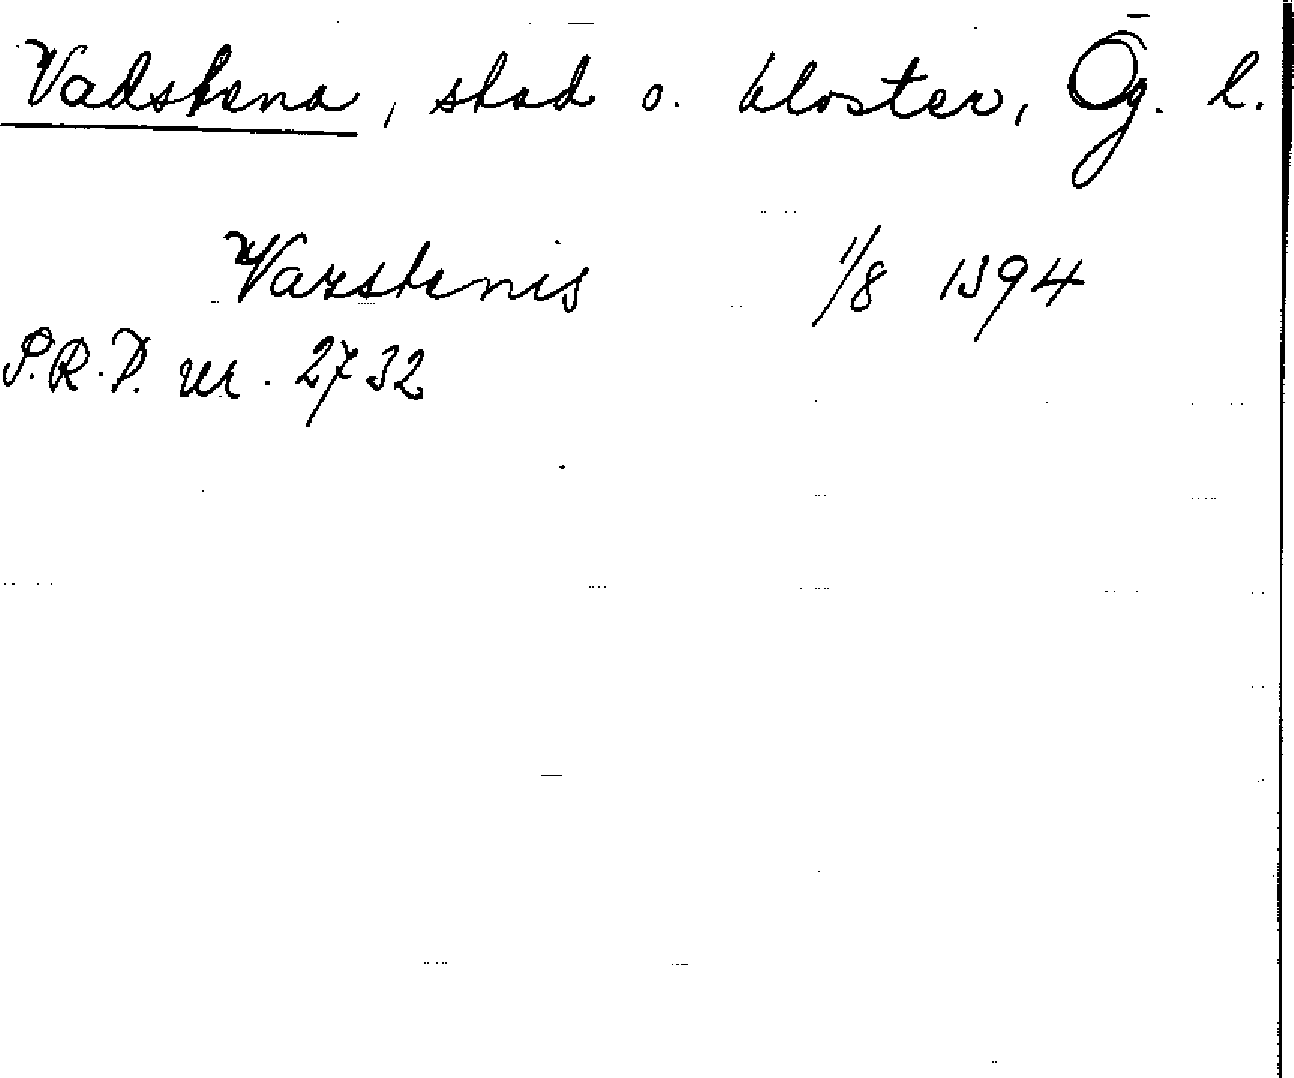 Vadstena, stad o. kloster, Ög. l.
Vazstenis 1/8 1394
S.R.P. nr. 2732